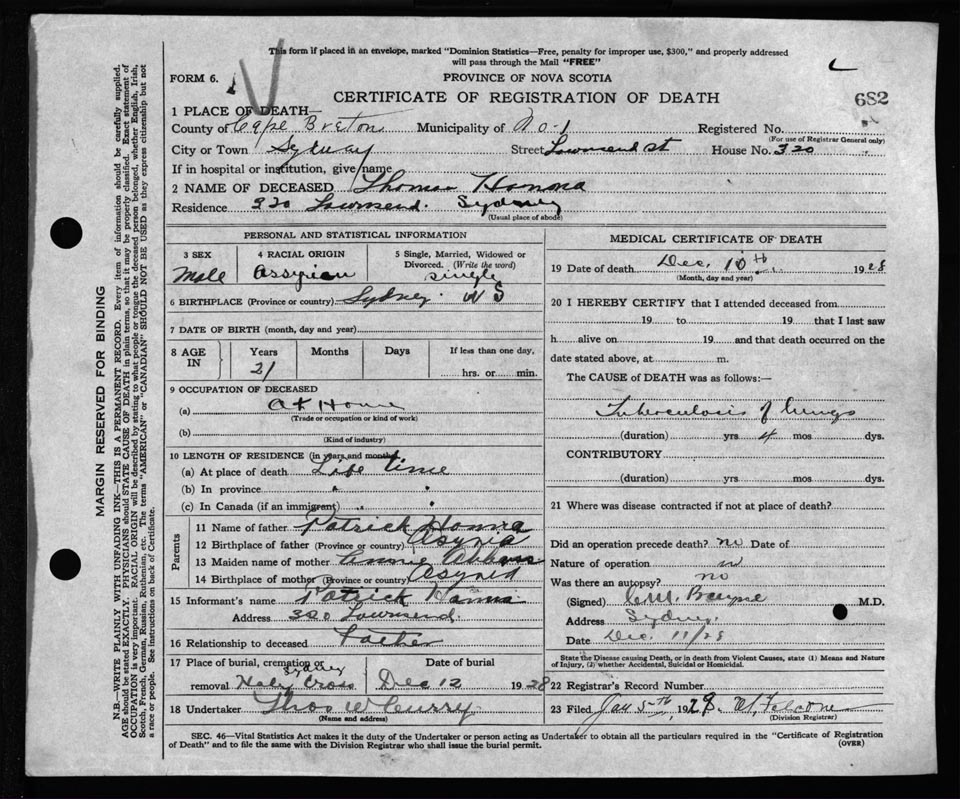 This form if placed in an envelope, marked "Dominion Statistics—Free, penalty for improper use, $300," and properly addressed
will pass through the Mail "FREE"
FORM 6.
PROVINCE OF NOVA SCOTIA
CERTIFICATE OF REGISTRATION OF DEATH
682
1 PLACE OF DEATH—
County of Cape Breton Municipality of No-1 Registered No.
(For use of Registrar General only)
City or Town Sydney Street Townsend St House No. 320
If in hospital or institution, give name
2 NAME OF DECEASED Thomas Hanna
Residence 320 Townsend. Sydney
(Usual place of abode)
PERSONAL AND STATISTICAL INFORMATION
3 SEX Male
4 RACIAL ORIGIN Assyrian
5 Single, Married, Widowed or Divorced. (Write the word) Single
6 BIRTHPLACE (Province or country) Sydney N S
7 DATE OF BIRTH (month, day and year)
8 AGE IN Years 21 Months Days If less than one day, hrs. or min.
9 OCCUPATION OF DECEASED
(a) At Home
(Trade or occupation or kind of work)
(b)
(Kind of industry)
10 LENGTH OF RESIDENCE (in years and months)
(a) At place of death Life time
(b) In province "  "
(c) In Canada (if an immigrant) "  "
Parents
11 Name of father Patrick Hanna
12 Birthplace of father (Province or country) Asyria
13 Maiden name of mother Annie
14 Birthplace of mother (Province or country) Asyria
15 Informant's name Patrick Hanna
Address 320 Townsend
16 Relationship to deceased Father
17 Place of burial, cremation or removal Holy Cross Sydney
Date of burial Dec 12 1928
18 Undertaker Thos W Curry
(Name and address)
MEDICAL CERTIFICATE OF DEATH
19 Date of death Dec. 10th 1928
(Month, day and year)
20 I HEREBY CERTIFY that I attended deceased from
19 to 19 that I last saw
h alive on 19 and that death occurred on the
date stated above, at m.
The CAUSE of DEATH was as follows:—
Tuberculosis of lungs
(duration) yrs 4 mos dys.
CONTRIBUTORY
(duration) yrs mos dys.
21 Where was disease contracted if not at place of death?
Did an operation precede death? no Date of
Nature of operation no
Was there an autopsy? no
(Signed) C.M. Bayne M.D.
Address Sydney.
Date Dec. 11/28
State the Disease causing Death, or in death from Violent Causes, state (1) Means and Nature
of Injury, (2) whether Accidental, Suicidal or Homicidal.
22 Registrar's Record Number
23 Filed Jan 5th 1929.
(Division Registrar)
SEC. 46—Vital Statistics Act makes it the duty of the Undertaker or person acting as Undertaker to obtain all the particulars required in the "Certificate of Registration
of Death" and to file the same with the Division Registrar who shall issue the burial permit.
(OVER)
MARGIN RESERVED FOR BINDING
N.B.—WRITE PLAINLY WITH UNFADING INK—THIS IS A PERMANENT RECORD. Every item of information should be carefully supplied.
AGE should be stated EXACTLY. PHYSICIANS should STATE CAUSE OF DEATH in plain terms, so that it may be properly classified. Exact statement of
OCCUPATION is very important. RACIAL ORIGIN will be described by stating to what people or tongue the deceased person belonged, whether English, Irish,
Scotch, French, German, Russian, Ruthenian, etc. The terms "AMERICAN" or "CANADIAN" SHOULD NOT BE USED as they express citizenship but not
a race or people. See instructions on back of Certificate.